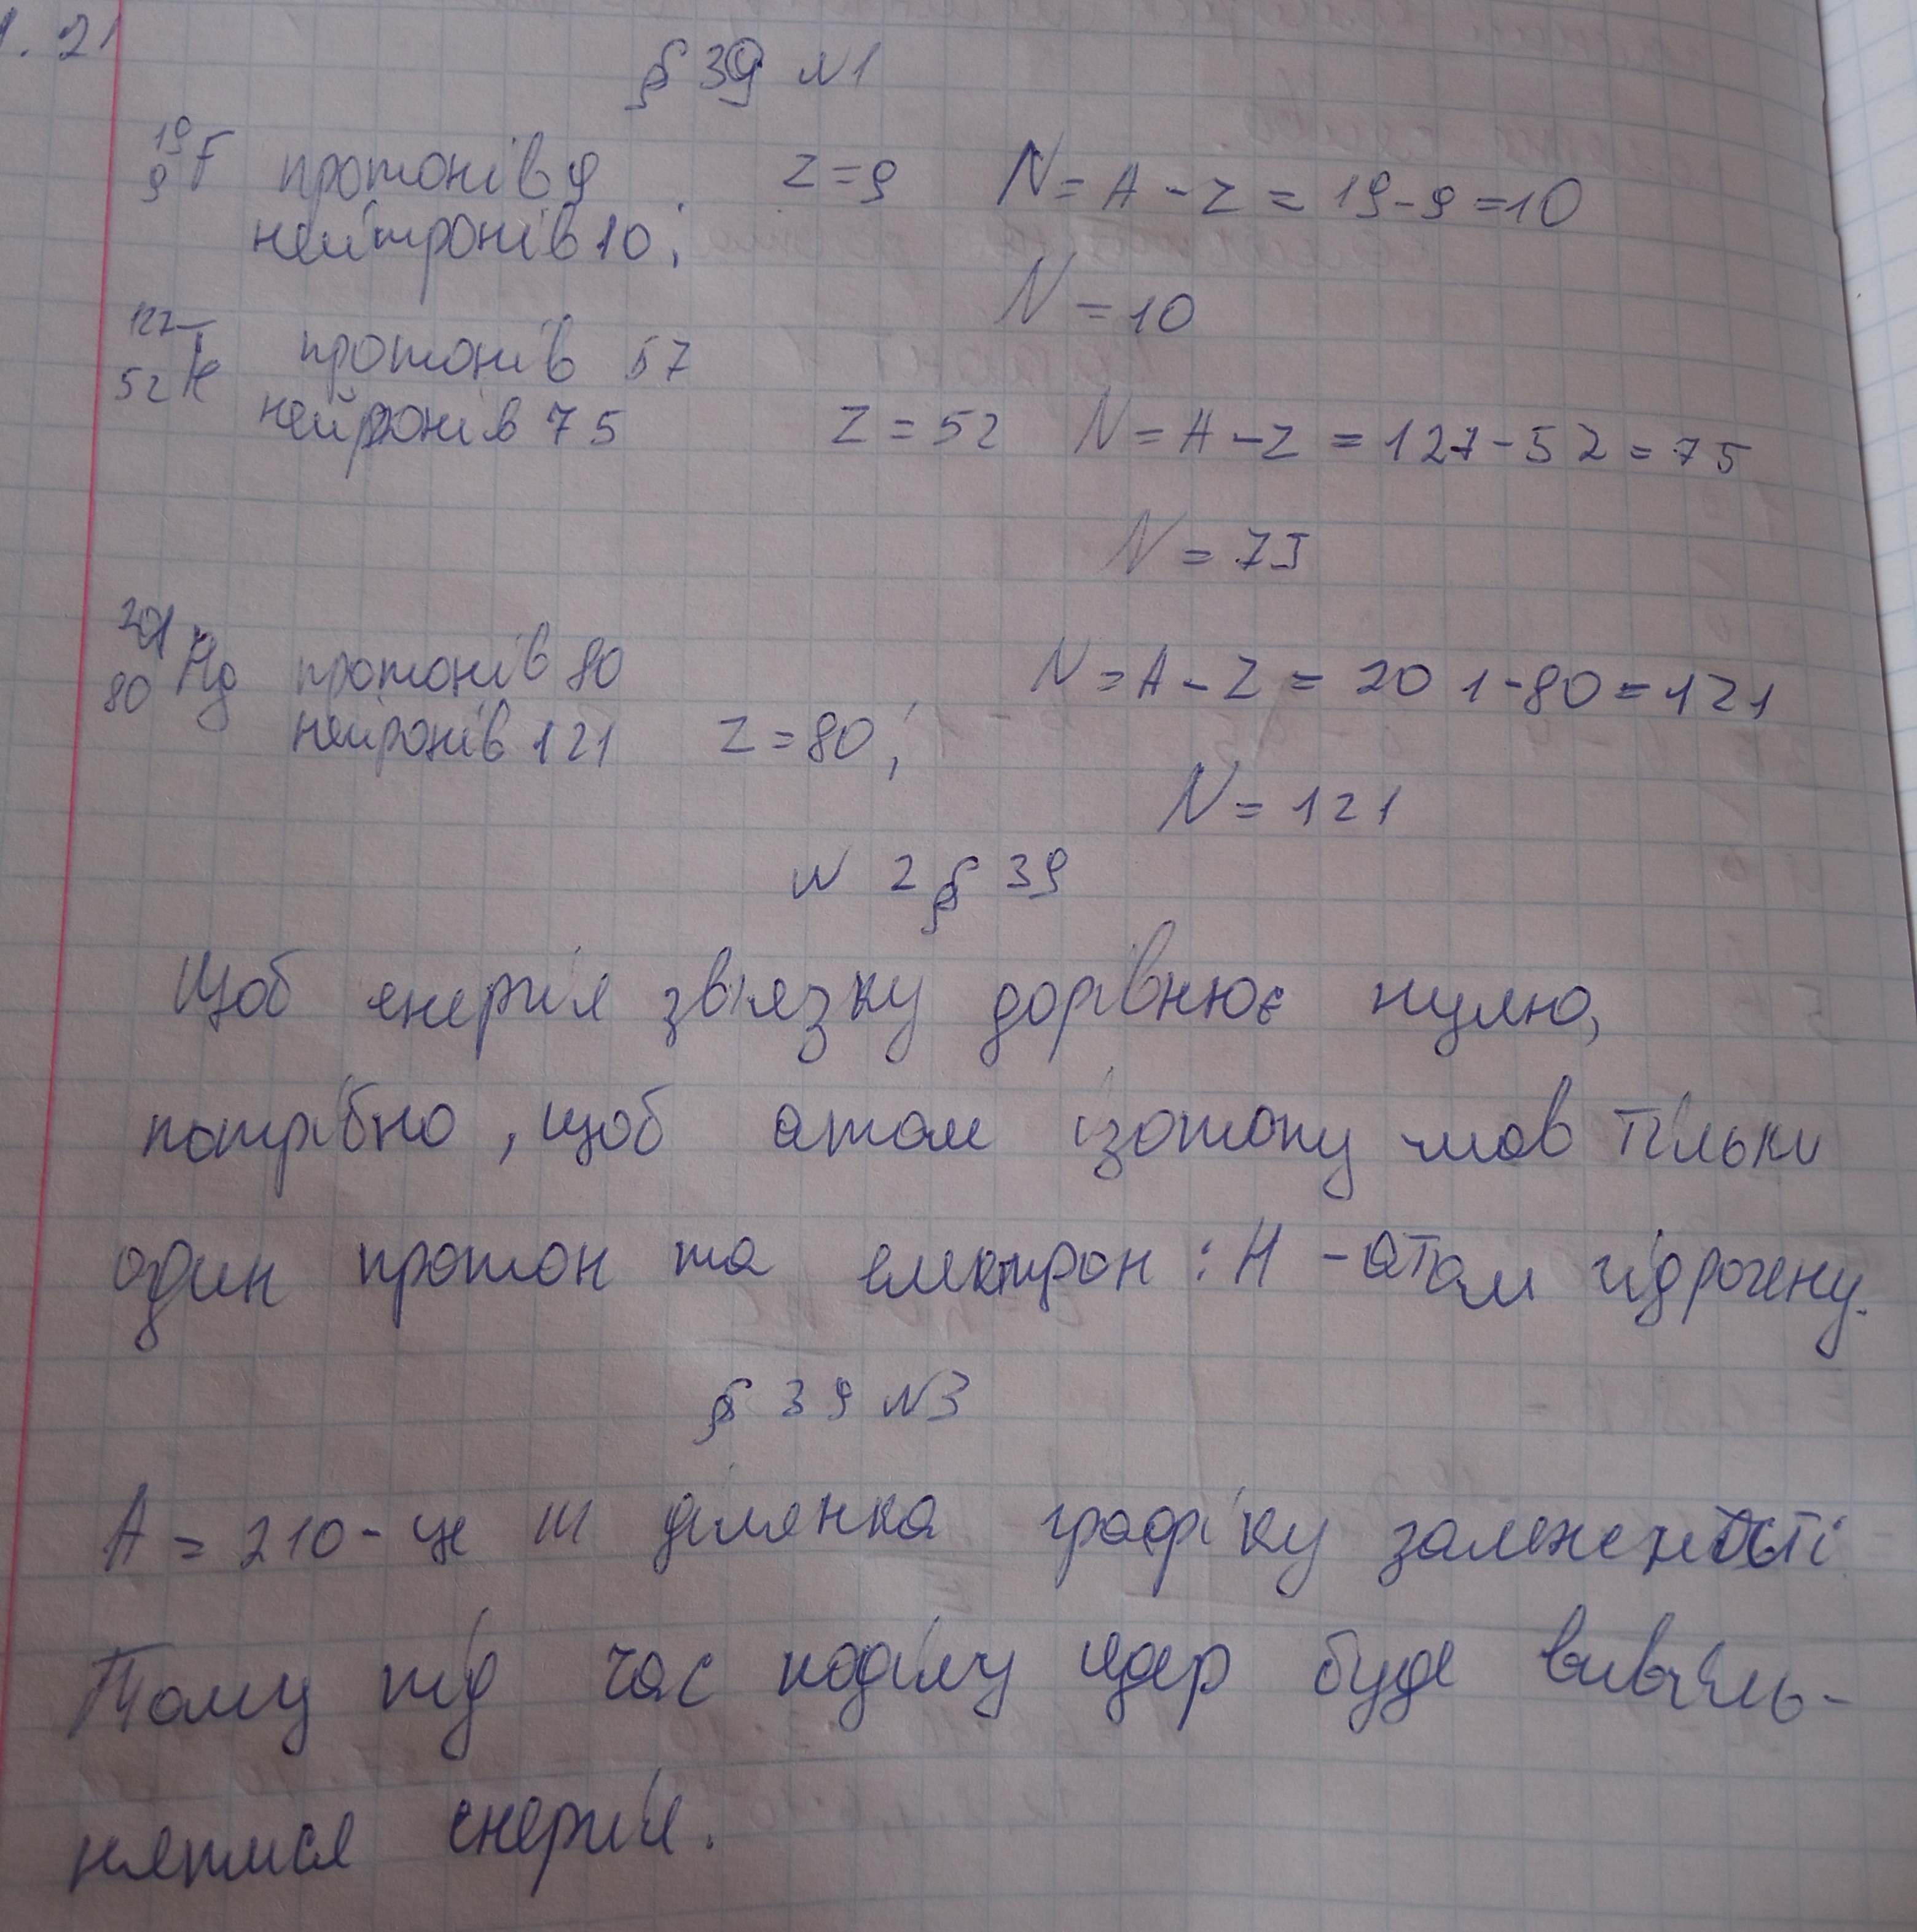 1.21
§ 39 №1
¹⁹₉F протонів 9 Z = 9 N = A - Z = 19 - 9 = 10
нейтронів 10;
N = 10
¹²⁷₅₂Te протонів 57
нейронів 75 Z = 52 N = A - Z = 127 - 52 = 75
N = 75
²⁰¹₈₀Hg протонів 80 N = A - Z = 201 - 80 = 121
нейронів 121 Z = 80;
N = 121
№ 2 § 39
Щоб енергія зв'язку дорівнює нулю,
потрібно, щоб атом ізотопу мав тільки
один протон та електрон : H - атом гідрогену.
§ 39 №3
A = 210 - це III ділянка графіку залежності
Тому під час поділу ядер буде вивіль-
нятися енергія.